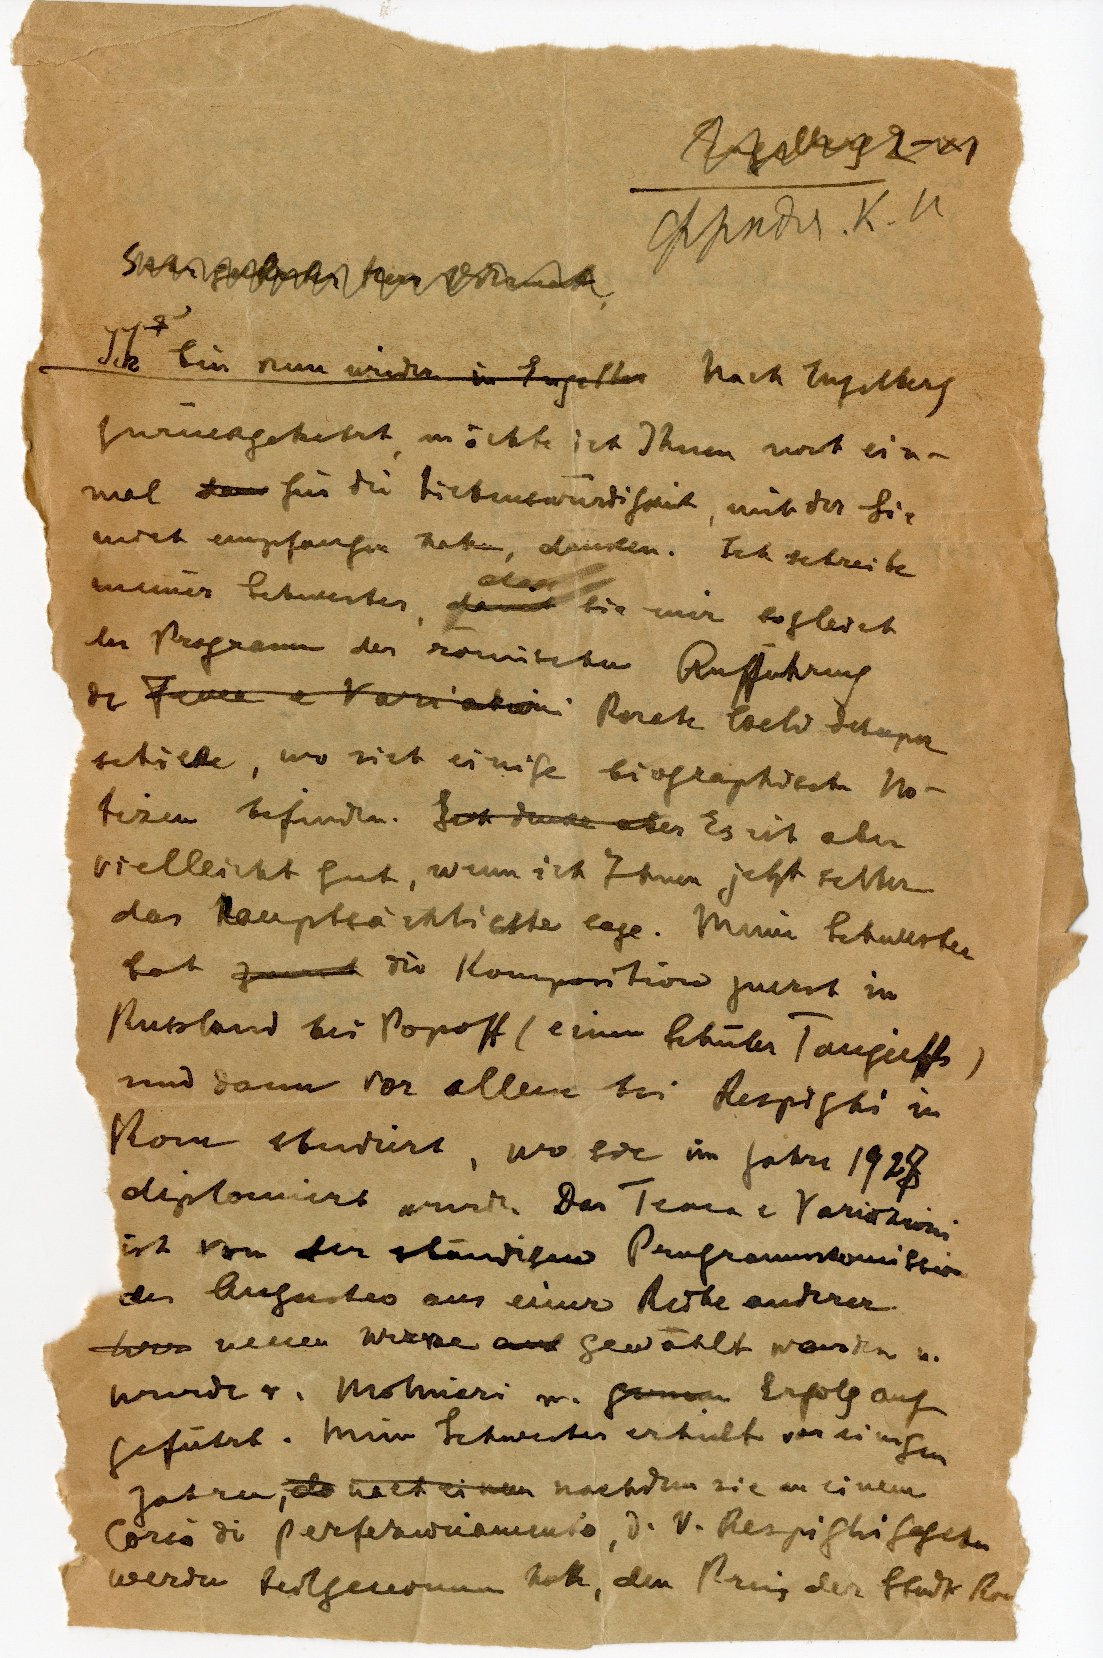 Engelberg 2-XI
K. H
Sehr geehrter Herr
Ich bin nun wieder in Engelber Nach Engelberg
zurückgekehrt, möchte ich Ihnen noch ein-
mal dan für die Liebenswürdigkeit, mit der Sie
mich empfangen haben, danken. Ich schreibe
meiner Schwester, damit dass sie mir sogleich
das Programm der römischen Aufführung
de Tema e Variazioni Rorate Coeli desuper
schicke, wo sich einige biographische No-
tizen befinden. Ich denke aber Es ist aber
vielleicht gut, wenn ich Ihnen jetzt selber
das Hauptsächlichste sage. Meine Schwester
hat zuerst die Komposition zuerst in
Russland bei Popoff (einem Schüler Tanjeffs)
und dann vor allem bei Respighi in
Rom studiert, wo sie im Jahre 1927
diplomiert wurde. Das Tema e Variazioni
ist von der ständigen Programmkomission
des Augusteo aus einer Reihe anderer
neuen Werke aus gewählt worden u.
wurde v. Molinari m. Erfolg auf
geführt. Meine Schwester erhielt vor einigen
Jahren, als nach einem nachdem sie an einem
Corso di perfezionamento, d. v. Respighi gegeben
werden teilgenommen hatte, den Preis der Stadt Rom